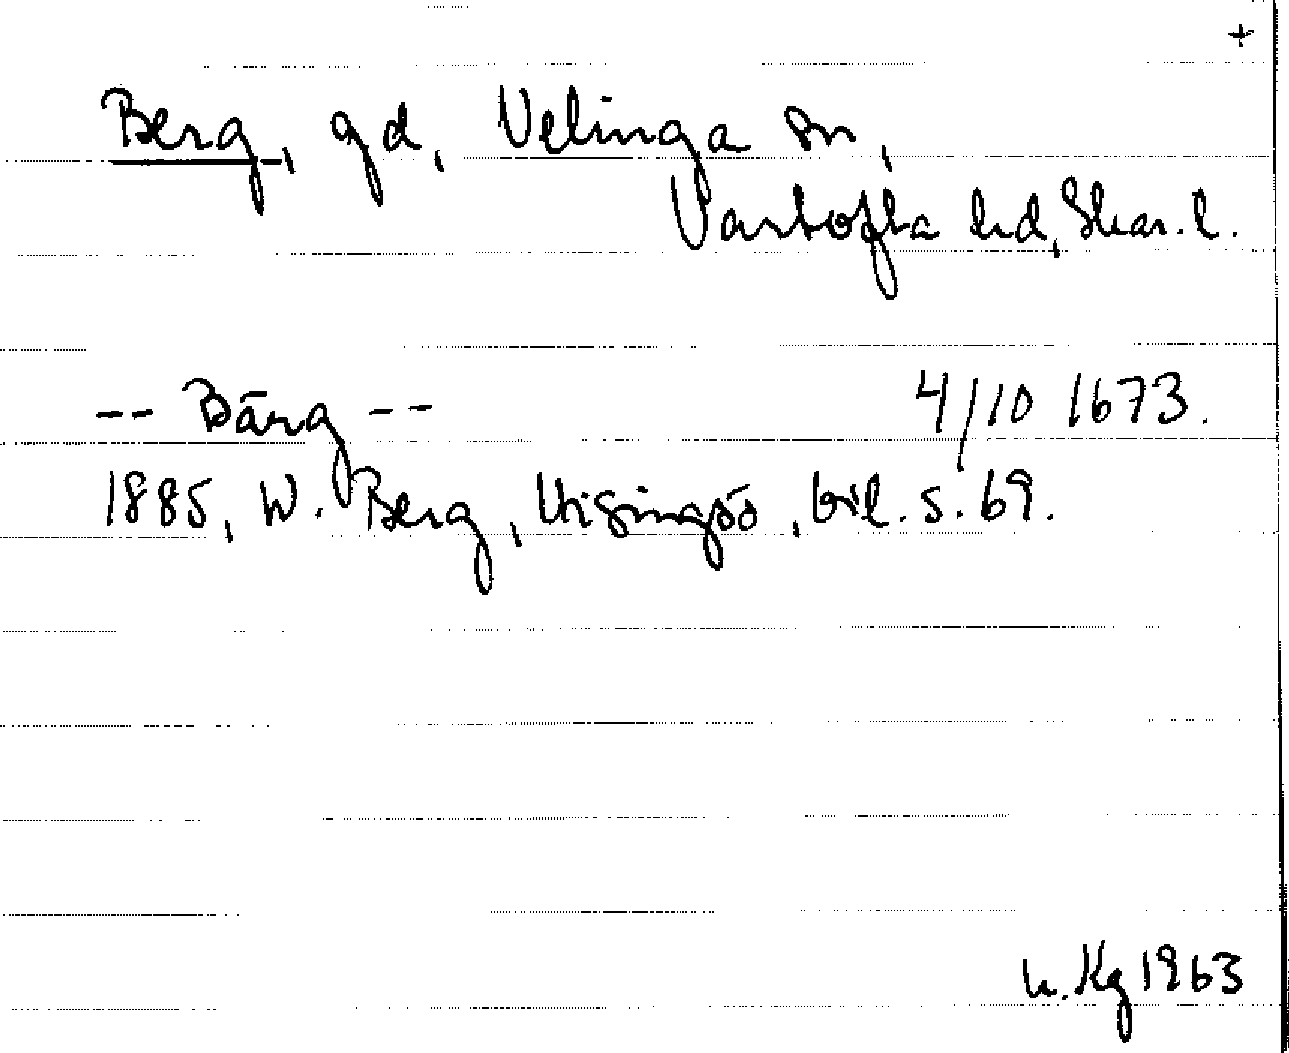 +
Berg, gd, Velinga sn,
Vartofta hd, Skar. l.
-- Bärg -- 4/10 1673.
1885, W. Berg, Visingsö, bil. s. 69.
Kg 1963